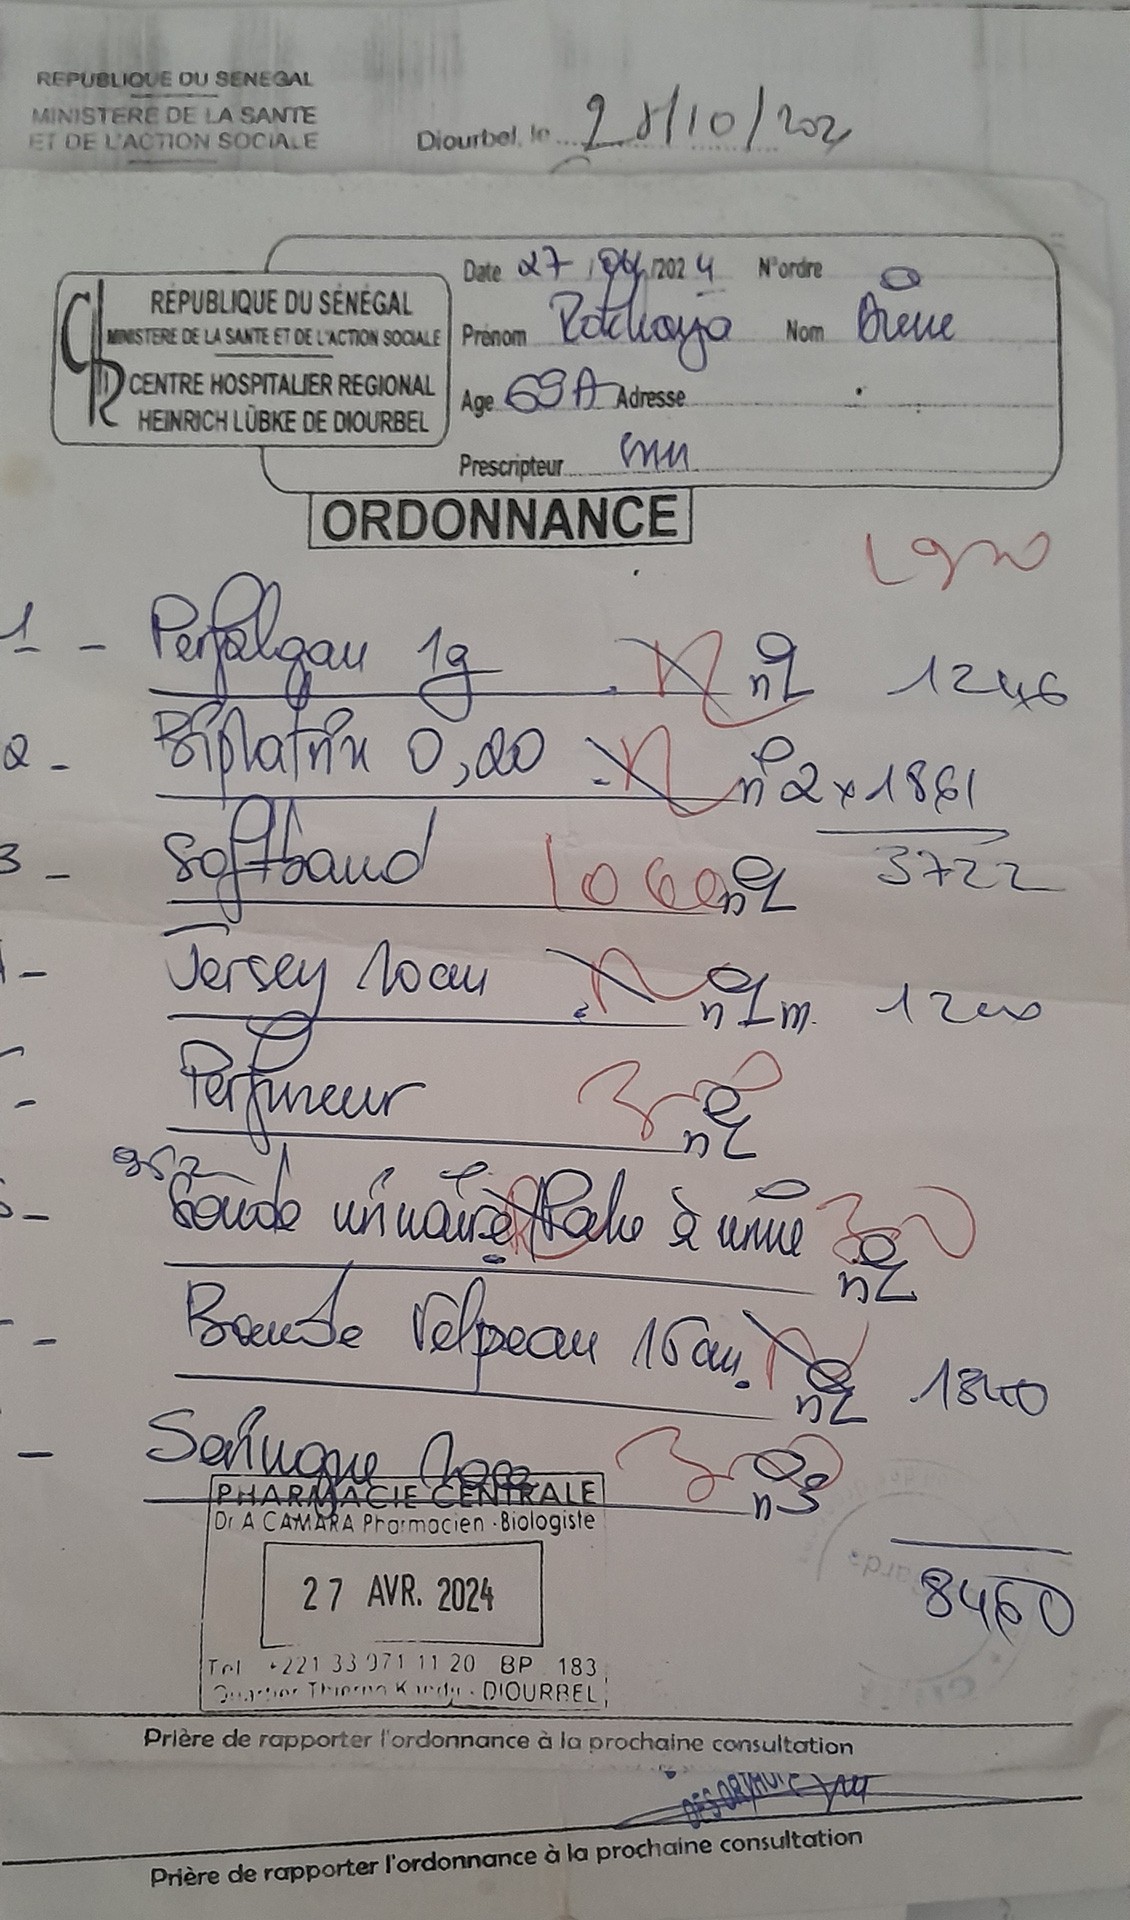 REPUBLIQUE DU SENEGAL
MINISTERE DE LA SANTE
ET DE L'ACTION SOCIALE
Diourbel, le 28/10/202
RÉPUBLIQUE DU SÉNÉGAL
MINISTERE DE LA SANTE ET DE L'ACTION SOCIALE
CENTRE HOSPITALIER REGIONAL
HEINRICH LÜBKE DE DIOURBEL
Date 27/04/2024 N°ordre
Prénom Nom Diene
Age 69A Adresse
Prescripteur
ORDONNANCE
1 - Perfalgan 1g n°1 1246
2 - Biplatrix 0,20 n°2 x 1861
3722
3 - Softband 1060 n°1
- Jersey 10cm n°1m. 1200
- Perfuseur n°1
952
- Sonde urinaire / Poche à urine n°1
- Bande Velpeau 15cm. n°1 1340
- Seringue 10cc n°3
8460
PHARMACIE CENTRALE
Dr A CAMARA Pharmacien-Biologiste
27 AVR. 2024
Tel +221 33 971 11 20 BP 183
Quartier Thierno Kandji - DIOURBEL
Prière de rapporter l'ordonnance à la prochaine consultation
Prière de rapporter l'ordonnance à la prochaine consultation